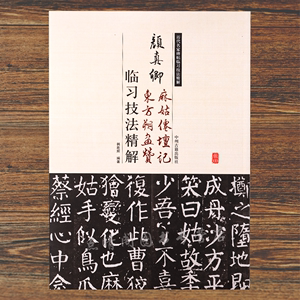 历代名家碑帖临习技法精解
顏真卿
麻姑僊壇記
東方朔畫贊
临习技法精解
中州古籍出版社
擲之墮地即
成丹沙方平
曰姑故年
少吾了不喜
復作此曹
獪變化也麻
姑手似鳥爪
蔡經心中念